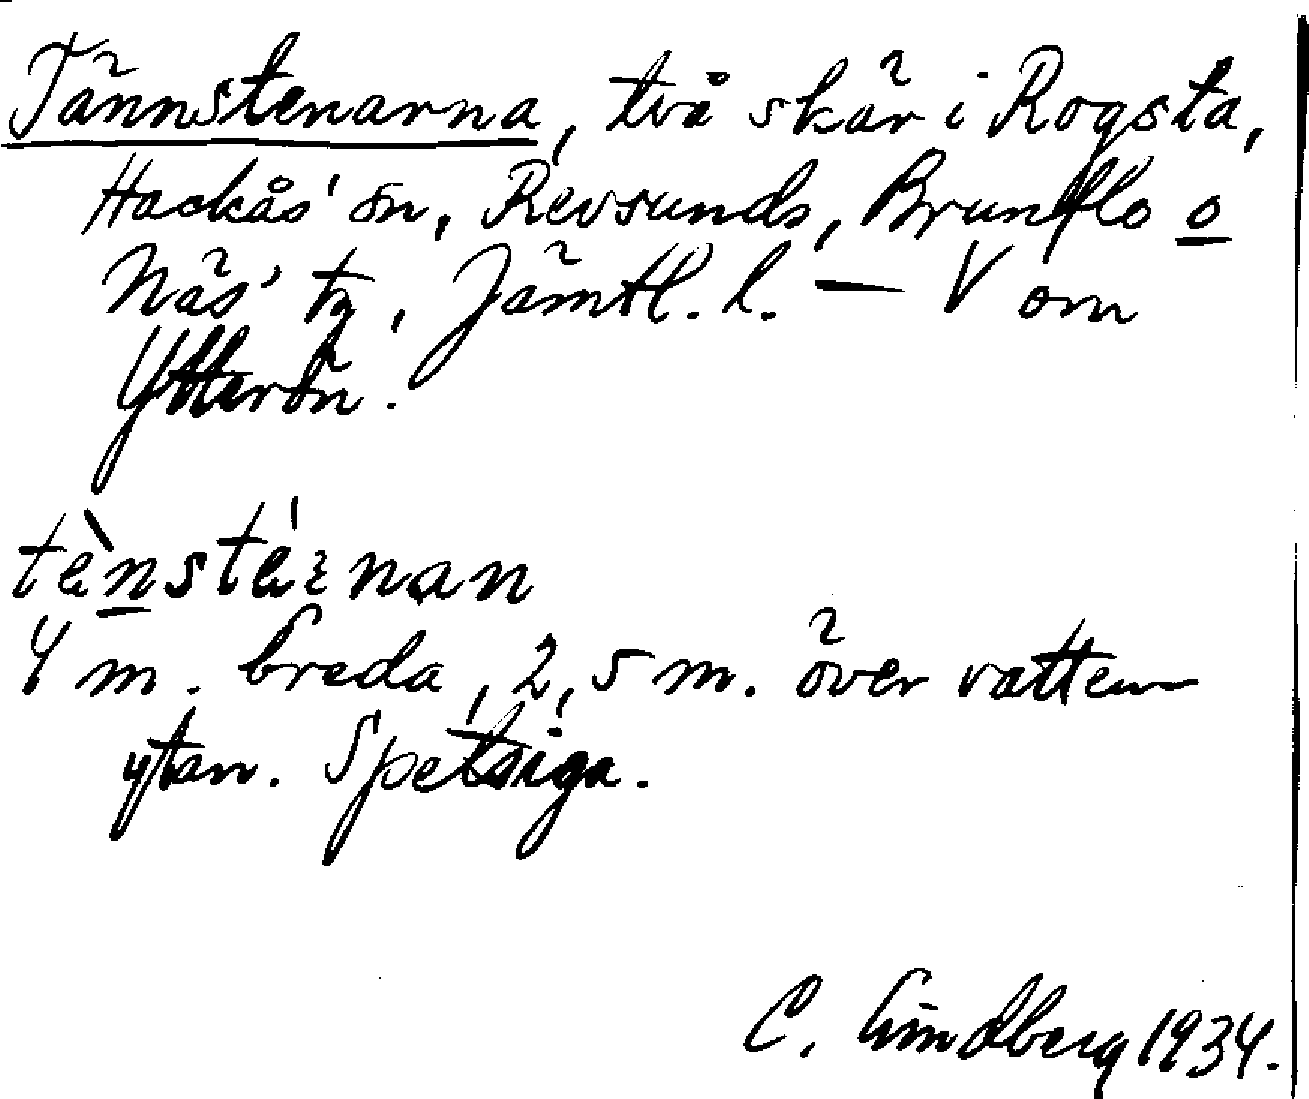 Tännstenarna, två skär i Rogsta,
Hackås' sn, Revsunds, Brunflo o
Näs' tg, Jämtl. l. — V om
Ytterön.
tènsté̀ɩnan
4 m. breda, 2,5 m. över vatten-
ytan. Spetsiga.
C. Lindberg 1934.